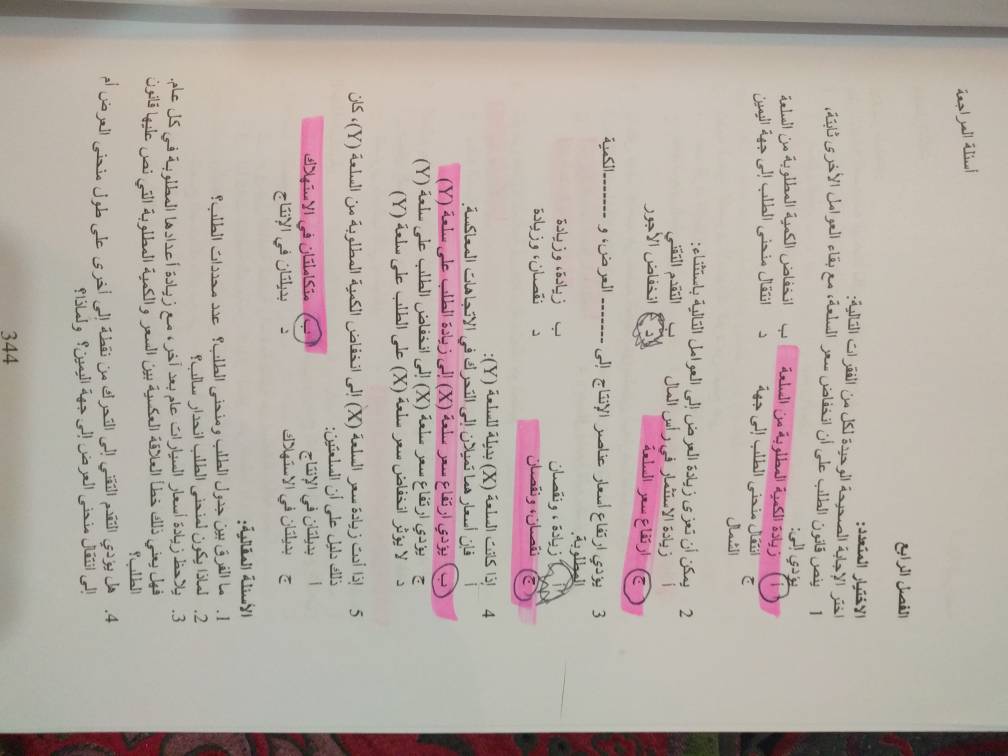 أسئلة المراجعة
الفصل الرابع
الاختيار المتعدد:
اختر الإجابة الصحيحة الوحيدة لكل من الفقرات التالية:
1 ينص قانون الطلب على أن انخفاض سعر السلعة، مع بقاء العوامل الأخرى ثابتة،
يؤدي إلى:
أ زيادة الكمية المطلوبة من السلعة ب انخفاض الكمية المطلوبة من السلعة
ج انتقال منحنى الطلب إلى جهة د انتقال منحنى الطلب إلى جهة اليمين
الشمال
2 يمكن أن تعزى زيادة العرض إلى العوامل التالية باستثناء:
أ زيادة الاستثمار في رأس المال ب التقدم التقني
ج ارتفاع سعر السلعة د انخفاض الأجور
3 يؤدي ارتفاع أسعار عناصر الإنتاج إلى ------- العرض، و -------الكمية
المطلوبة.
أ زيادة ، ونقصان ب زيادة، وزيادة
ج نقصان، ونقصان د نقصان، وزيادة
4 إذا كانت السلعة (X) بديلة للسلعة (Y):
أ فإن أسعار هما تميلان إلى التحرك في الاتجاهات المعاكسة.
ب يؤدي ارتفاع سعر سلعة (X) إلى زيادة الطلب على سلعة (Y)
ج يؤدي ارتفاع سعر سلعة (X) إلى انخفاض الطلب على سلعة (Y)
د لا يؤثر انخفاض سعر سلعة (X) على الطلب على سلعة (Y)
5 إذا أدت زيادة سعر السلعة (X) إلى انخفاض الكمية المطلوبة من السلعة (Y)، كان
ذلك دليل على أن السلعتين:
أ بديلتان في الإنتاج ب متكاملتان في الاستهلاك
ج بديلتان في الاستهلاك د بديلتان في الإنتاج
الأسئلة المقالية:
1. ما الفرق بين جدول الطلب ومنحنى الطلب؟ عدد محددات الطلب؟
2. لماذا يكون لمنحنى الطلب انحدار سالب؟
3. يلاحظ زيادة أسعار السيارات عام بعد آخر، مع زيادة أعدادها المطلوبة في كل عام.
فهل يعني ذلك خطأ العلاقة العكسية بين السعر والكمية المطلوبة التي نص عليها قانون
الطلب؟
4. هل يؤدي التقدم التقني إلى التحرك من نقطة إلى أخرى على طول منحنى العرض أم
إلى انتقال منحنى العرض إلى جهة اليمين؟ ولماذا؟
344